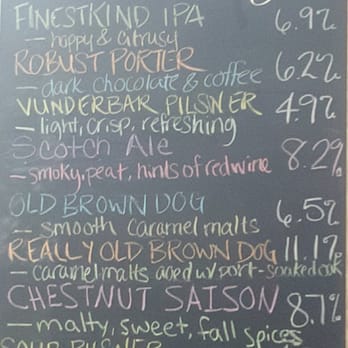 FINESTKIND IPA 6.9%
— hoppy & citrusy
ROBUST PORTER 6.2%
— dark chocolate & coffee
VUNDERBAR PILSNER 4.9%
— light, crisp, refreshing
Scotch Ale 8.2%
— smoky, peat, hints of red wine
OLD BROWN DOG 6.5%
— smooth caramel malts
REALLY OLD BROWN DOG 11.1%
— caramel malts aged w/ port-soaked oak
CHESTNUT SAISON 8.7%
— malty, sweet, fall spices
SOUR PILSNER